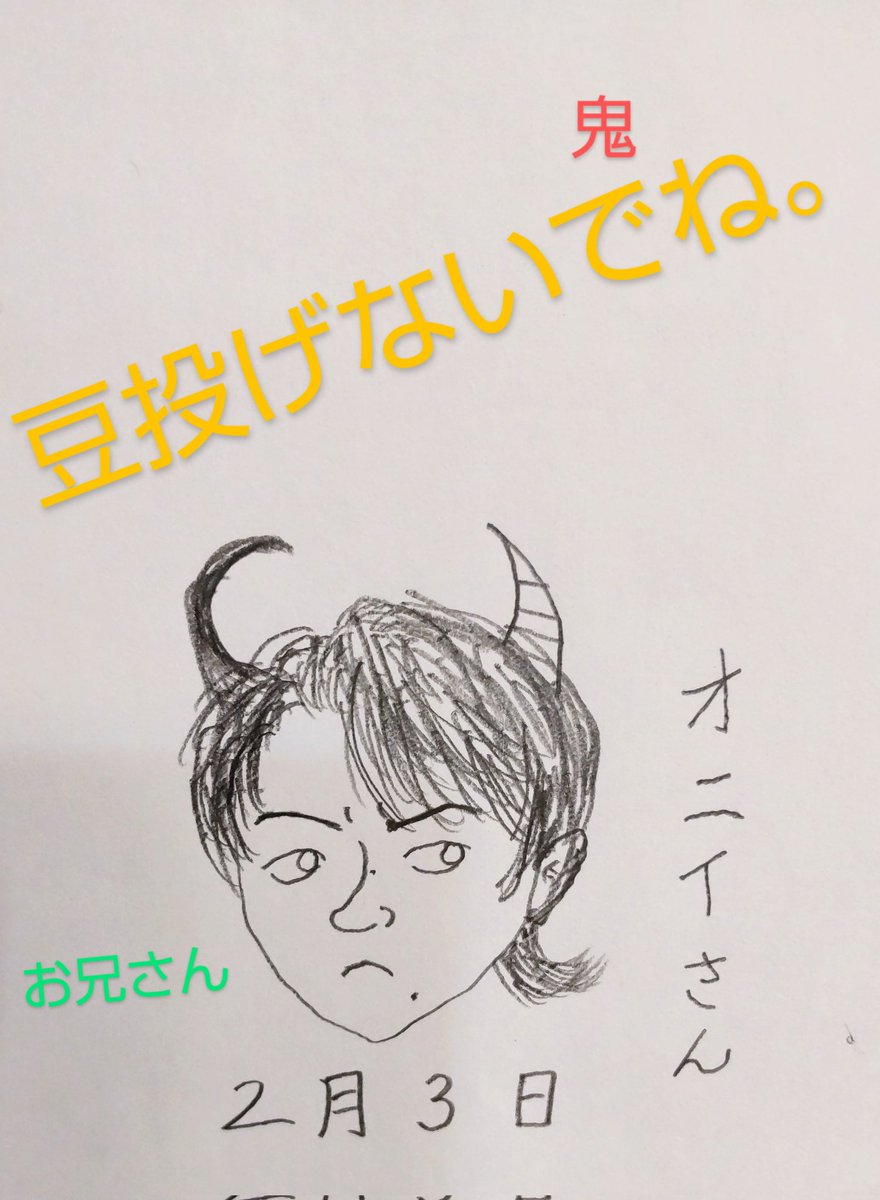 鬼
豆投げないでね。
オニイさん
お兄さん
2月3日